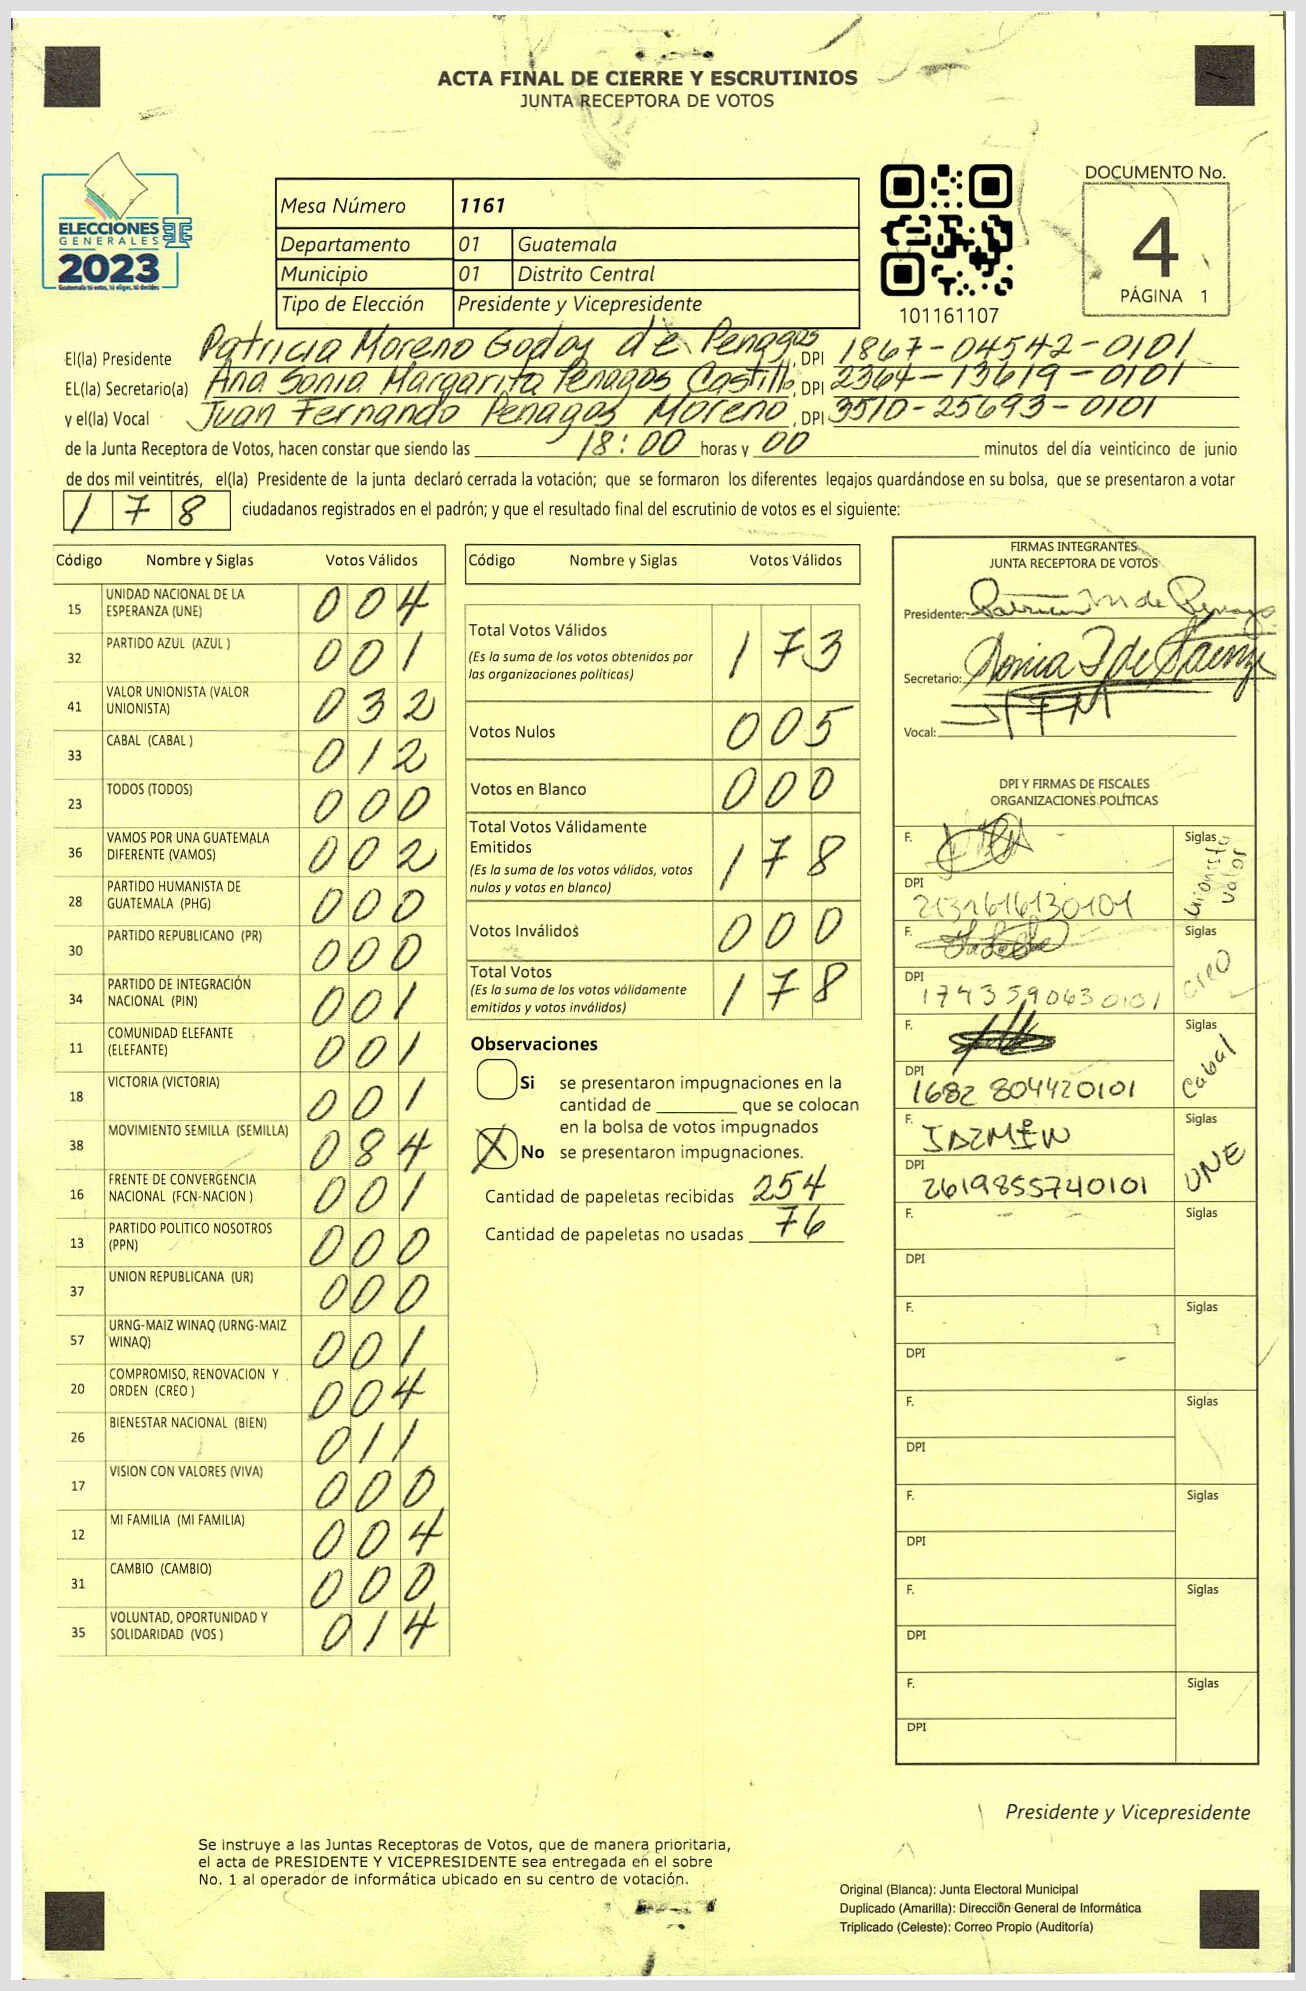 ACTA FINAL DE CIERRE Y ESCRUTINIOS
JUNTA RECEPTORA DE VOTOS
ELECCIONES
GENERALES
2023
Guatemala tú votas, tú eliges, tú decides
Mesa Número 1161
Departamento 01 Guatemala
Municipio 01 Distrito Central
Tipo de Elección Presidente y Vicepresidente
101161107
DOCUMENTO No.
4
PÁGINA 1
El(la) Presidente Patricia Moreno Godoy de Penagos, DPI 1867-04542-0101
EL(la) Secretario(a) Ana Sonia Margarita Penagos Castillo, DPI 2364-13619-0101
y el(la) Vocal Juan Fernando Penagos Moreno, DPI 3510-25693-0101
de la Junta Receptora de Votos, hacen constar que siendo las 18:00 horas y 00 minutos del día veinticinco de junio
de dos mil veintitrés, el(la) Presidente de la junta declaró cerrada la votación; que se formaron los diferentes legajos quardándose en su bolsa, que se presentaron a votar
178 ciudadanos registrados en el padrón; y que el resultado final del escrutinio de votos es el siguiente:
Código Nombre y Siglas Votos Válidos
15 UNIDAD NACIONAL DE LA
ESPERANZA (UNE) 004
32 PARTIDO AZUL (AZUL ) 001
41 VALOR UNIONISTA (VALOR
UNIONISTA) 032
33 CABAL (CABAL ) 012
23 TODOS (TODOS) 000
36 VAMOS POR UNA GUATEMALA
DIFERENTE (VAMOS) 002
28 PARTIDO HUMANISTA DE
GUATEMALA (PHG) 000
30 PARTIDO REPUBLICANO (PR) 000
34 PARTIDO DE INTEGRACIÓN
NACIONAL (PIN) 001
11 COMUNIDAD ELEFANTE
(ELEFANTE) 001
18 VICTORIA (VICTORIA) 001
38 MOVIMIENTO SEMILLA (SEMILLA) 084
16 FRENTE DE CONVERGENCIA
NACIONAL (FCN-NACION ) 001
13 PARTIDO POLITICO NOSOTROS
(PPN) 000
37 UNION REPUBLICANA (UR) 000
57 URNG-MAIZ WINAQ (URNG-MAIZ
WINAQ) 001
20 COMPROMISO, RENOVACION Y
ORDEN (CREO ) 004
26 BIENESTAR NACIONAL (BIEN) 011
17 VISION CON VALORES (VIVA) 000
12 MI FAMILIA (MI FAMILIA) 004
31 CAMBIO (CAMBIO) 000
35 VOLUNTAD, OPORTUNIDAD Y
SOLIDARIDAD (VOS ) 014
Código Nombre y Siglas Votos Válidos
Total Votos Válidos 173
(Es la suma de los votos obtenidos por
las organizaciones políticas)
Votos Nulos 005
Votos en Blanco 000
Total Votos Válidamente
Emitidos 178
(Es la suma de los votos válidos, votos
nulos y votos en blanco)
Votos Inválidos 000
Total Votos 178
(Es la suma de los votos válidamente
emitidos y votos inválidos)
Observaciones
Si se presentaron impugnaciones en la
cantidad de ________ que se colocan
en la bolsa de votos impugnados
X No se presentaron impugnaciones.
Cantidad de papeletas recibidas 254
Cantidad de papeletas no usadas 76
FIRMAS INTEGRANTES
JUNTA RECEPTORA DE VOTOS
Presidente: Patricia M de Penagos
Secretario: Sonia P de Saenz
Vocal: JFPM
DPI Y FIRMAS DE FISCALES
ORGANIZACIONES POLÍTICAS
F. Siglas Unionista Valor
DPI 2131616130101
F. Siglas Creo
DPI 1743590630101
F. Siglas Cabal
DPI 1682 804420101
F. JAZMIN Siglas UNE
DPI 2619855740101
F. Siglas
DPI
F. Siglas
DPI
F. Siglas
DPI
F. Siglas
DPI
F. Siglas
DPI
F. Siglas
DPI
Presidente y Vicepresidente
Se instruye a las Juntas Receptoras de Votos, que de manera prioritaria,
el acta de PRESIDENTE Y VICEPRESIDENTE sea entregada en el sobre
No. 1 al operador de informática ubicado en su centro de votación.
Original (Blanca): Junta Electoral Municipal
Duplicado (Amarilla): Dirección General de Informática
Triplicado (Celeste): Correo Propio (Auditoría)